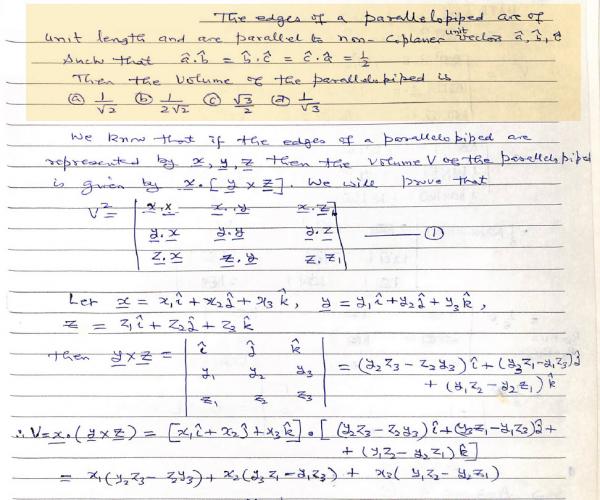 The edges of a parallelopiped are of
unit length and are parallel to non-coplaner unit vectors â, b̂, ĉ
Such that â.b̂ = b̂.ĉ = ĉ.â = 1/2
Then the volume of the parallelopiped is
(a) 1/√2 (b) 1/2√2 (c) √3/2 (d) 1/√3
We know that if the edges of a parallelopiped are
represented by x, y, z then the volume V of the parallelopiped
is given by x.[y × z]. We will prove that
V² = | x.x x.y x.z |
| y.x y.y y.z | —— (1)
| z.x z.y z.z |
Let x = x₁î + x₂ĵ + x₃k̂, y = y₁î + y₂ĵ + y₃k̂,
z = z₁î + z₂ĵ + z₃k̂
then y × z = | î ĵ k̂ | = (y₂z₃ - z₂y₃)î + (y₃z₁ - y₁z₃)ĵ
| y₁ y₂ y₃ | + (y₁z₂ - y₂z₁)k̂
| z₁ z₂ z₃ |
∴ V = x.(y × z) = [x₁î + x₂ĵ + x₃k̂].[(y₂z₃ - z₂y₃)î + (y₃z₁ - y₁z₃)ĵ +
+ (y₁z₂ - y₂z₁)k̂]
= x₁(y₂z₃ - z₂y₃) + x₂(y₃z₁ - y₁z₃) + x₃(y₁z₂ - y₂z₁)